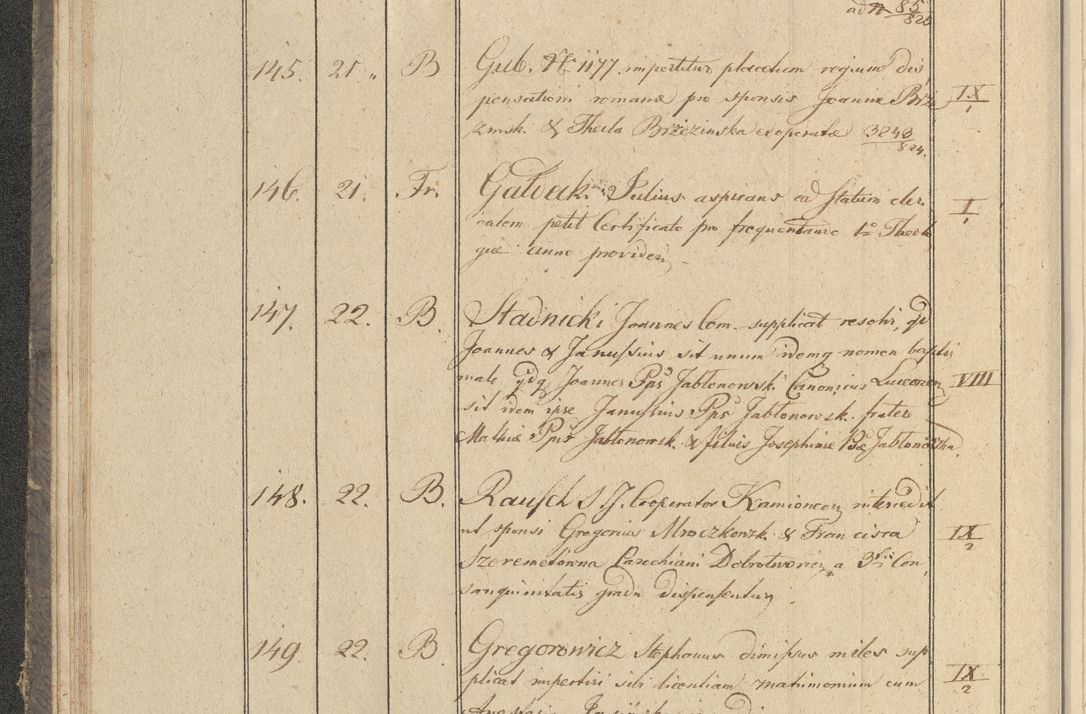 ad N 85/825
145. 21 " B Gub. N 1177. impertitur placetum regium dis
pensationi romanæ pro sponsis Joanne Brze IX/1
zinski & Thecla Brzezinska exoperatæ 3243/824.
146. 21. Fr. Galvak Julius aspirans ad Statum cleri I/1
calem petit Certificato pro frequentando 1o Theolo
giæ anno provideri
147. 22. B. Stadnicki Joannes Com. supplicat resolvi, an
Joannes & Janussius sit unum idemq nomen baptis
male Joannes Pps Jabłonowski Canonicus VIII
sit idem ipse Janussius Pps Jabłonowsk. frater
Mathiæ Ppis Jabłonowsk. & filius Josephinæ Jabłonowska.
148. 22. B. Rausch S J. Cooperator Kamioncen intercedit
ut sponsi Gregorius Mroczkowsk. & Francisca IX/2
Szeremetowna Parochiani Dobrotworien a 3tio Con
sanguinitatis gradu dispensentur.
149 22. B. Gregorowicz Stephanus dimissus miles sup
plicat impertiri sibi licentiam matrimonium cum IX/2